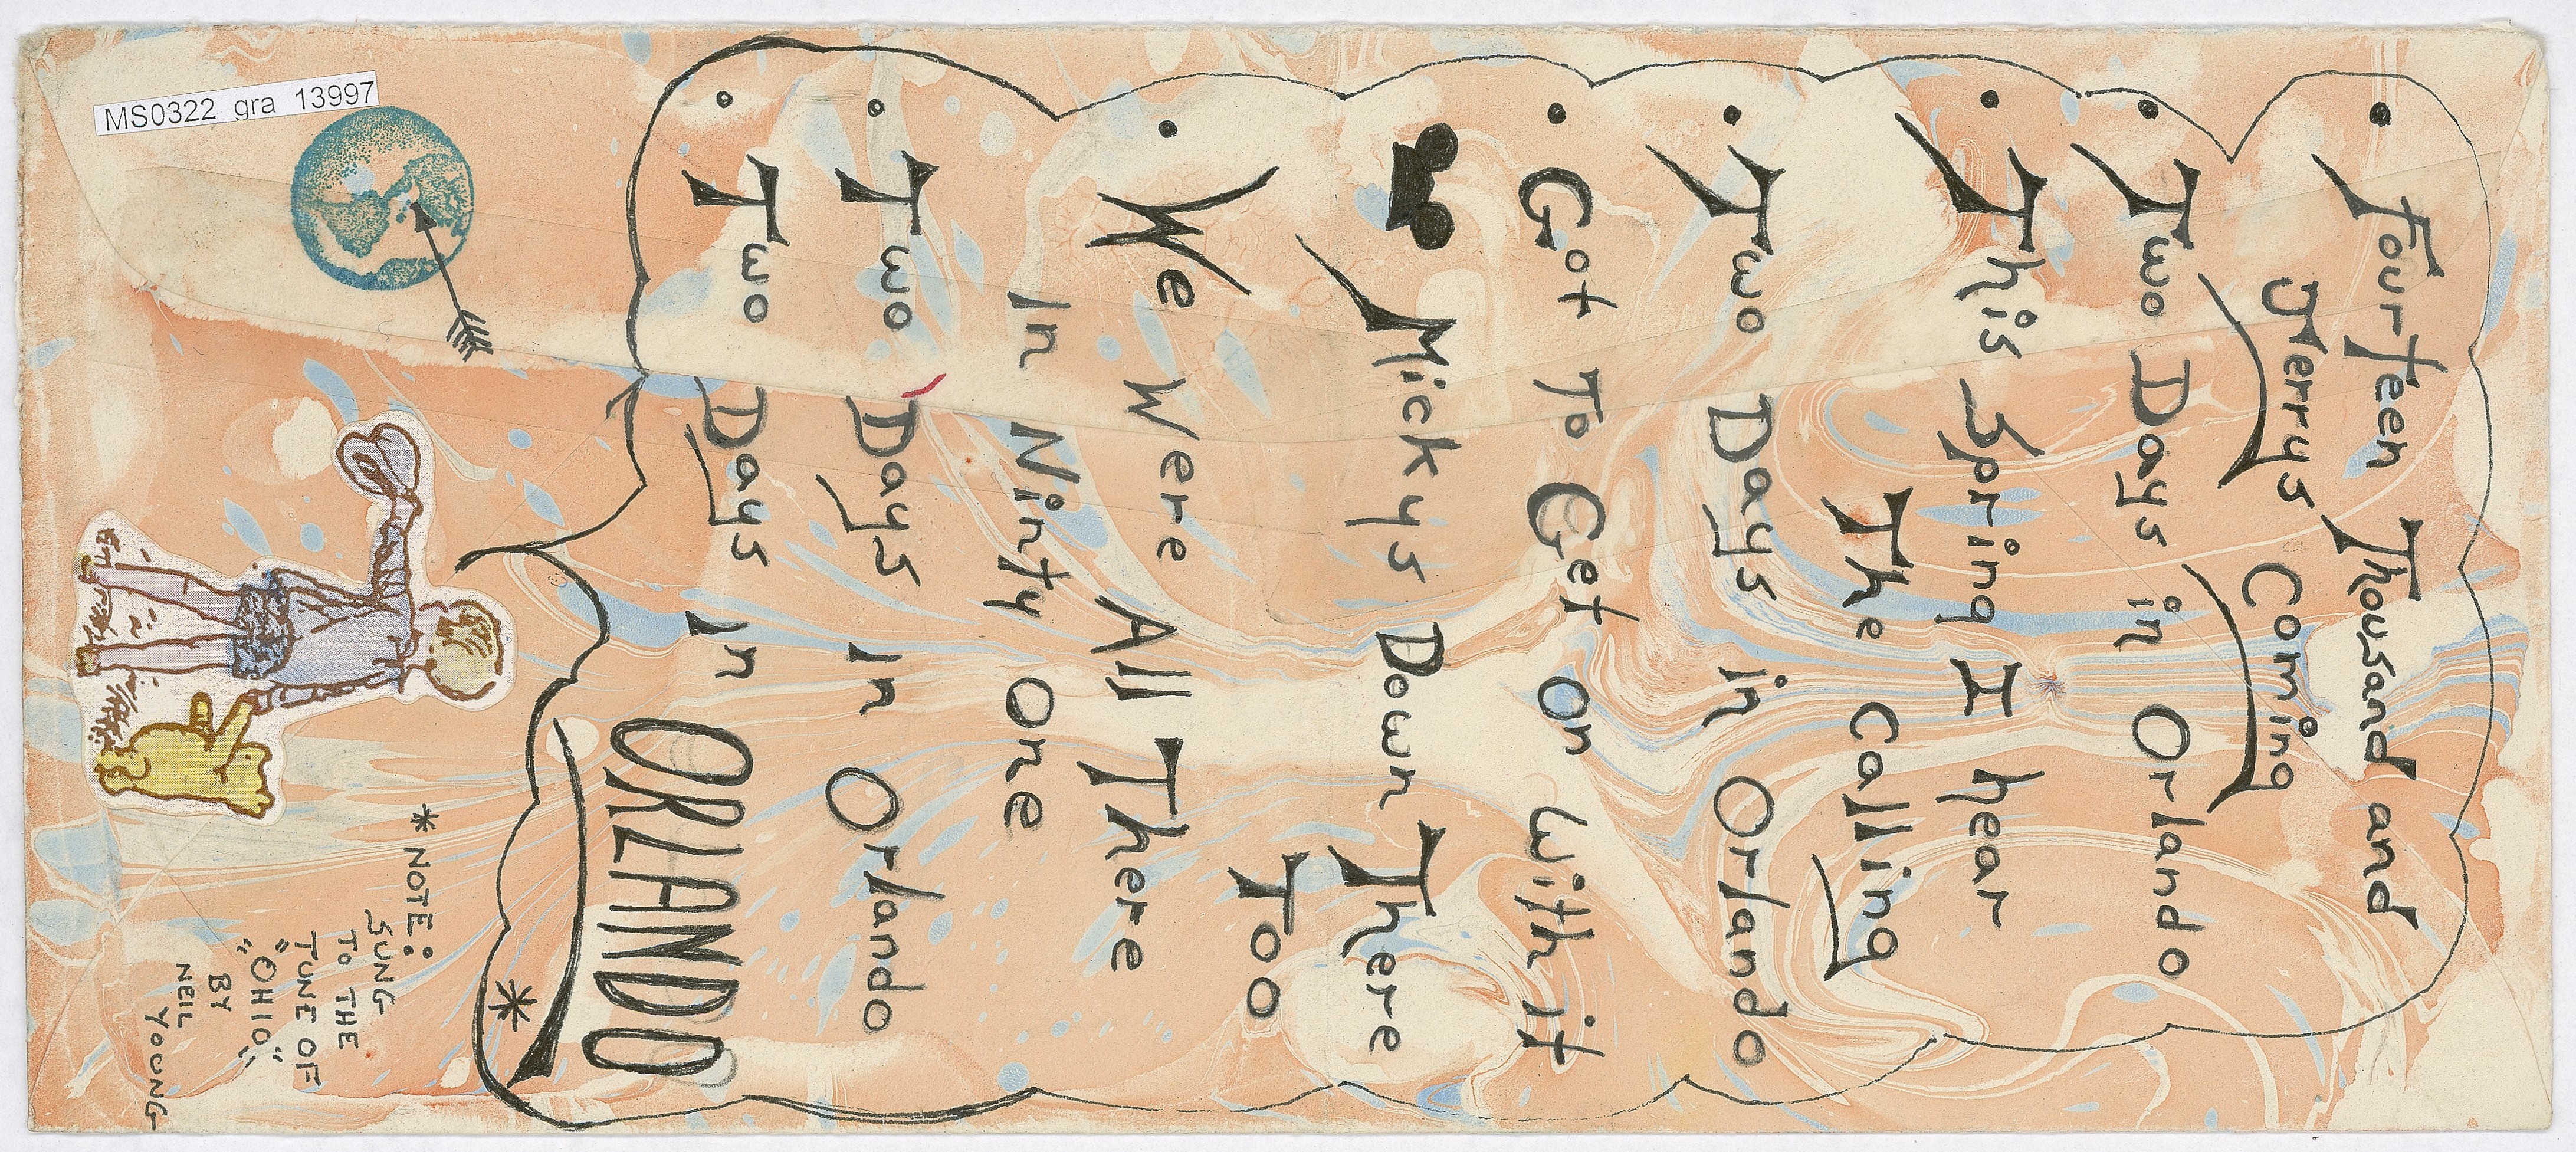 • Fourteen Thousand and
Jerrys Coming
• Two Days in Orlando
• This Spring I hear
The Calling
• Two Days in Orlando
• Got To Get On with it
Mickys Down There
Too
• We Were All There
In Ninty One
• Two Days In Orlando
• Two Days In ORLANDO
*
* NOTE:
SUNG
To THE
TUNE OF
"OHIO"
BY
NEIL
YOUNG
MS0322 gra 13997